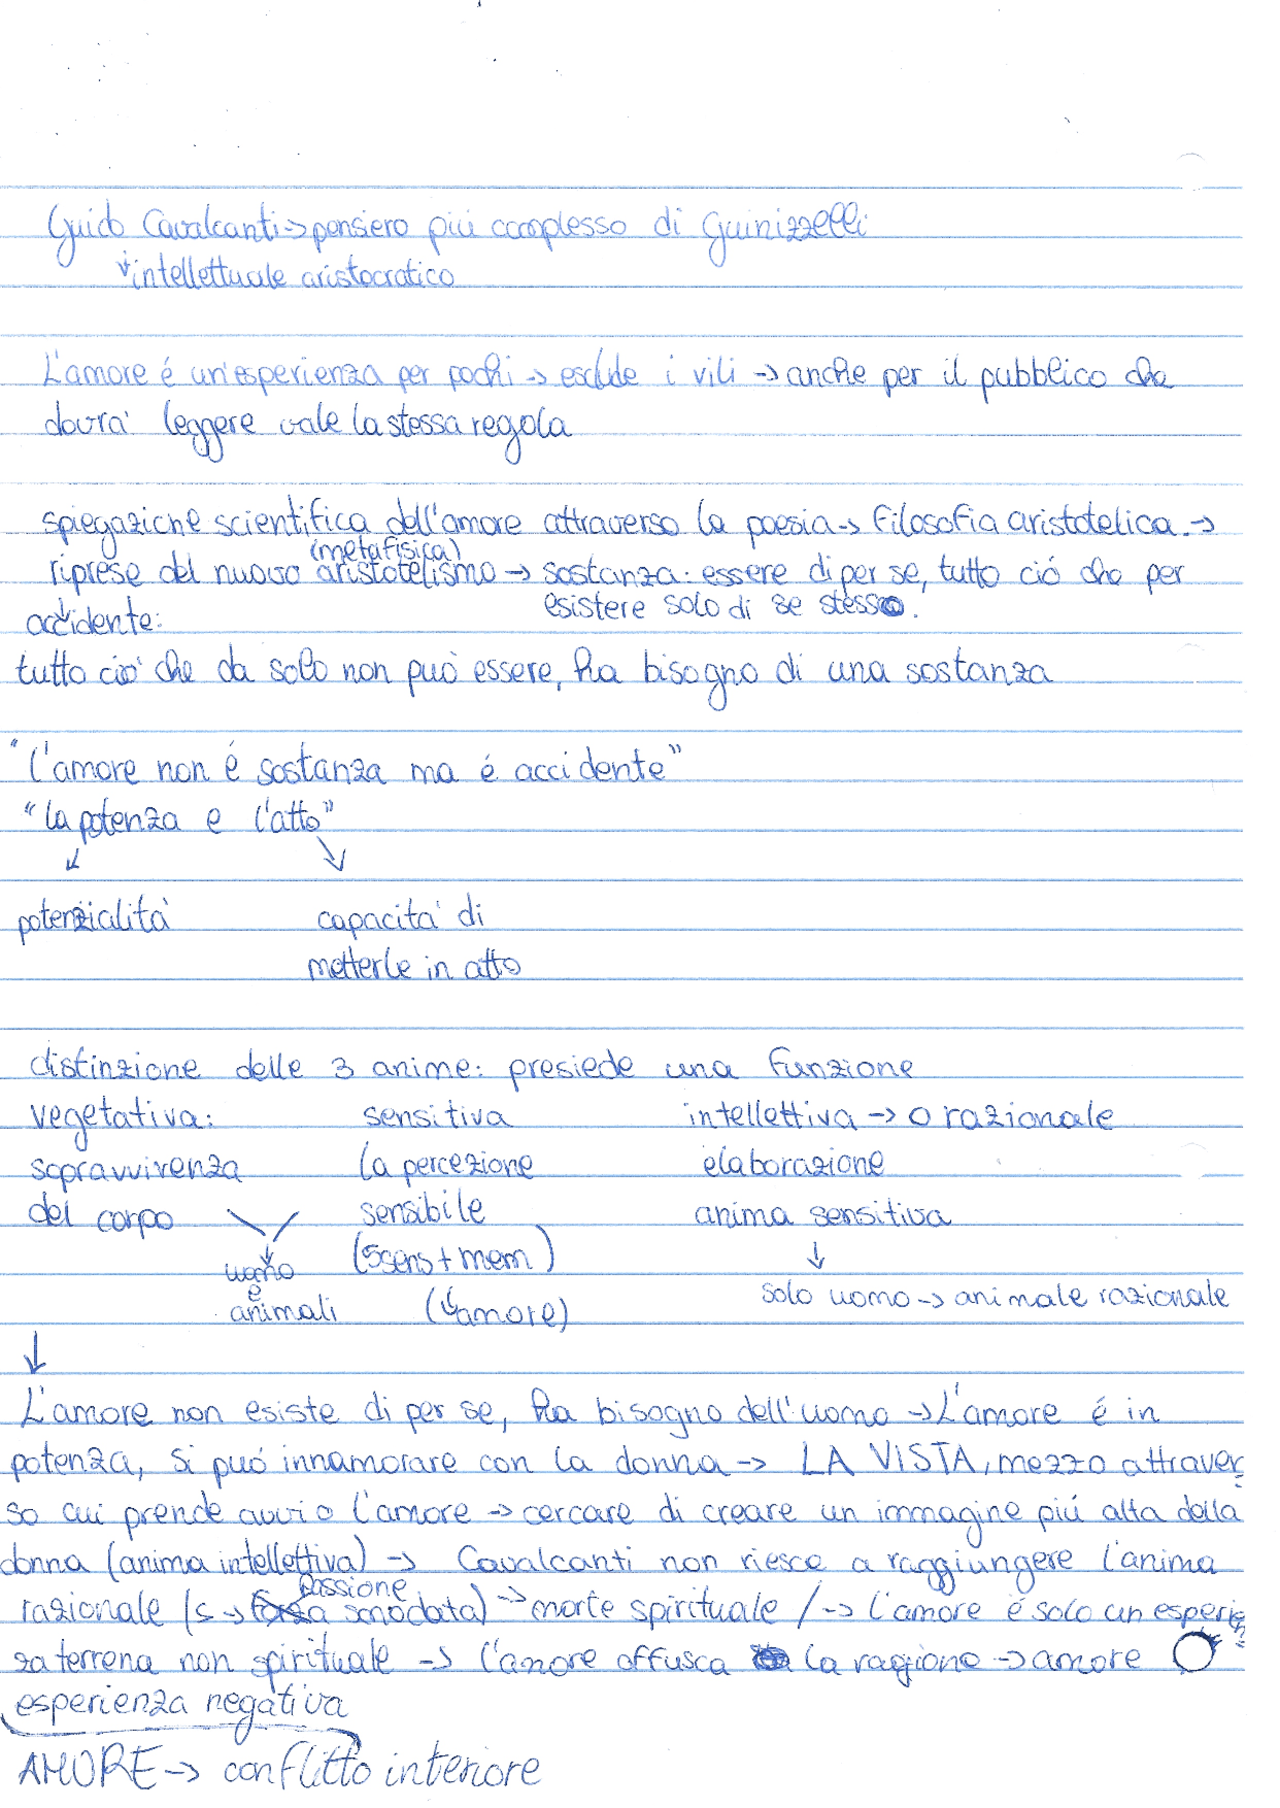 Guido Cavalcanti → pensiero piú complesso di Guinizzelli
↓ intellettuale aristocratico
L'amore é un'esperienza per pochi → esclude i vili → anche per il pubblico che
dovra' leggere vale la stessa regola
spiegazione scientifica dell'amore attraverso la poesia → Filosofia aristotelica. →
(metafisica)
riprese del nuovo aristotelismo → sostanza: essere di per se, tutto ció che per
esistere solo di se stesso.
accidente:
tutto cio' che da solo non puo' essere, ha bisogno di una sostanza
"L'amore non é sostanza ma é accidente"
"la potenza e l'atto"
↙ ↘
potenzialita' capacita' di
metterle in atto
distinzione delle 3 anime: presiede una funzione
vegetativa: sensitiva intellettiva → o razionale
sopravvivenza la percezione elaborazione
del corpo sensibile anima sensitiva
(5sens + mem) ↓
uomo
e
animali (L'amore) solo uomo → animale razionale
↓
L'amore non esiste di per se, ha bisogno dell'uomo → L'amore é in
potenza, si puó innamorare con la donna → LA VISTA, mezzo attraver
so cui prende avvio l'amore → cercare di creare un immagine piú alta della
donna (anima intellettiva) → Cavalcanti non riesce a raggiungere l'anima
passione
razionale (s → forza smodata) → morte spirituale / → l'amore é solo un esperien
za terrena non spirituale → l'amore offusca la ragione → amore
esperienza negativa
AMORE → conflitto interiore